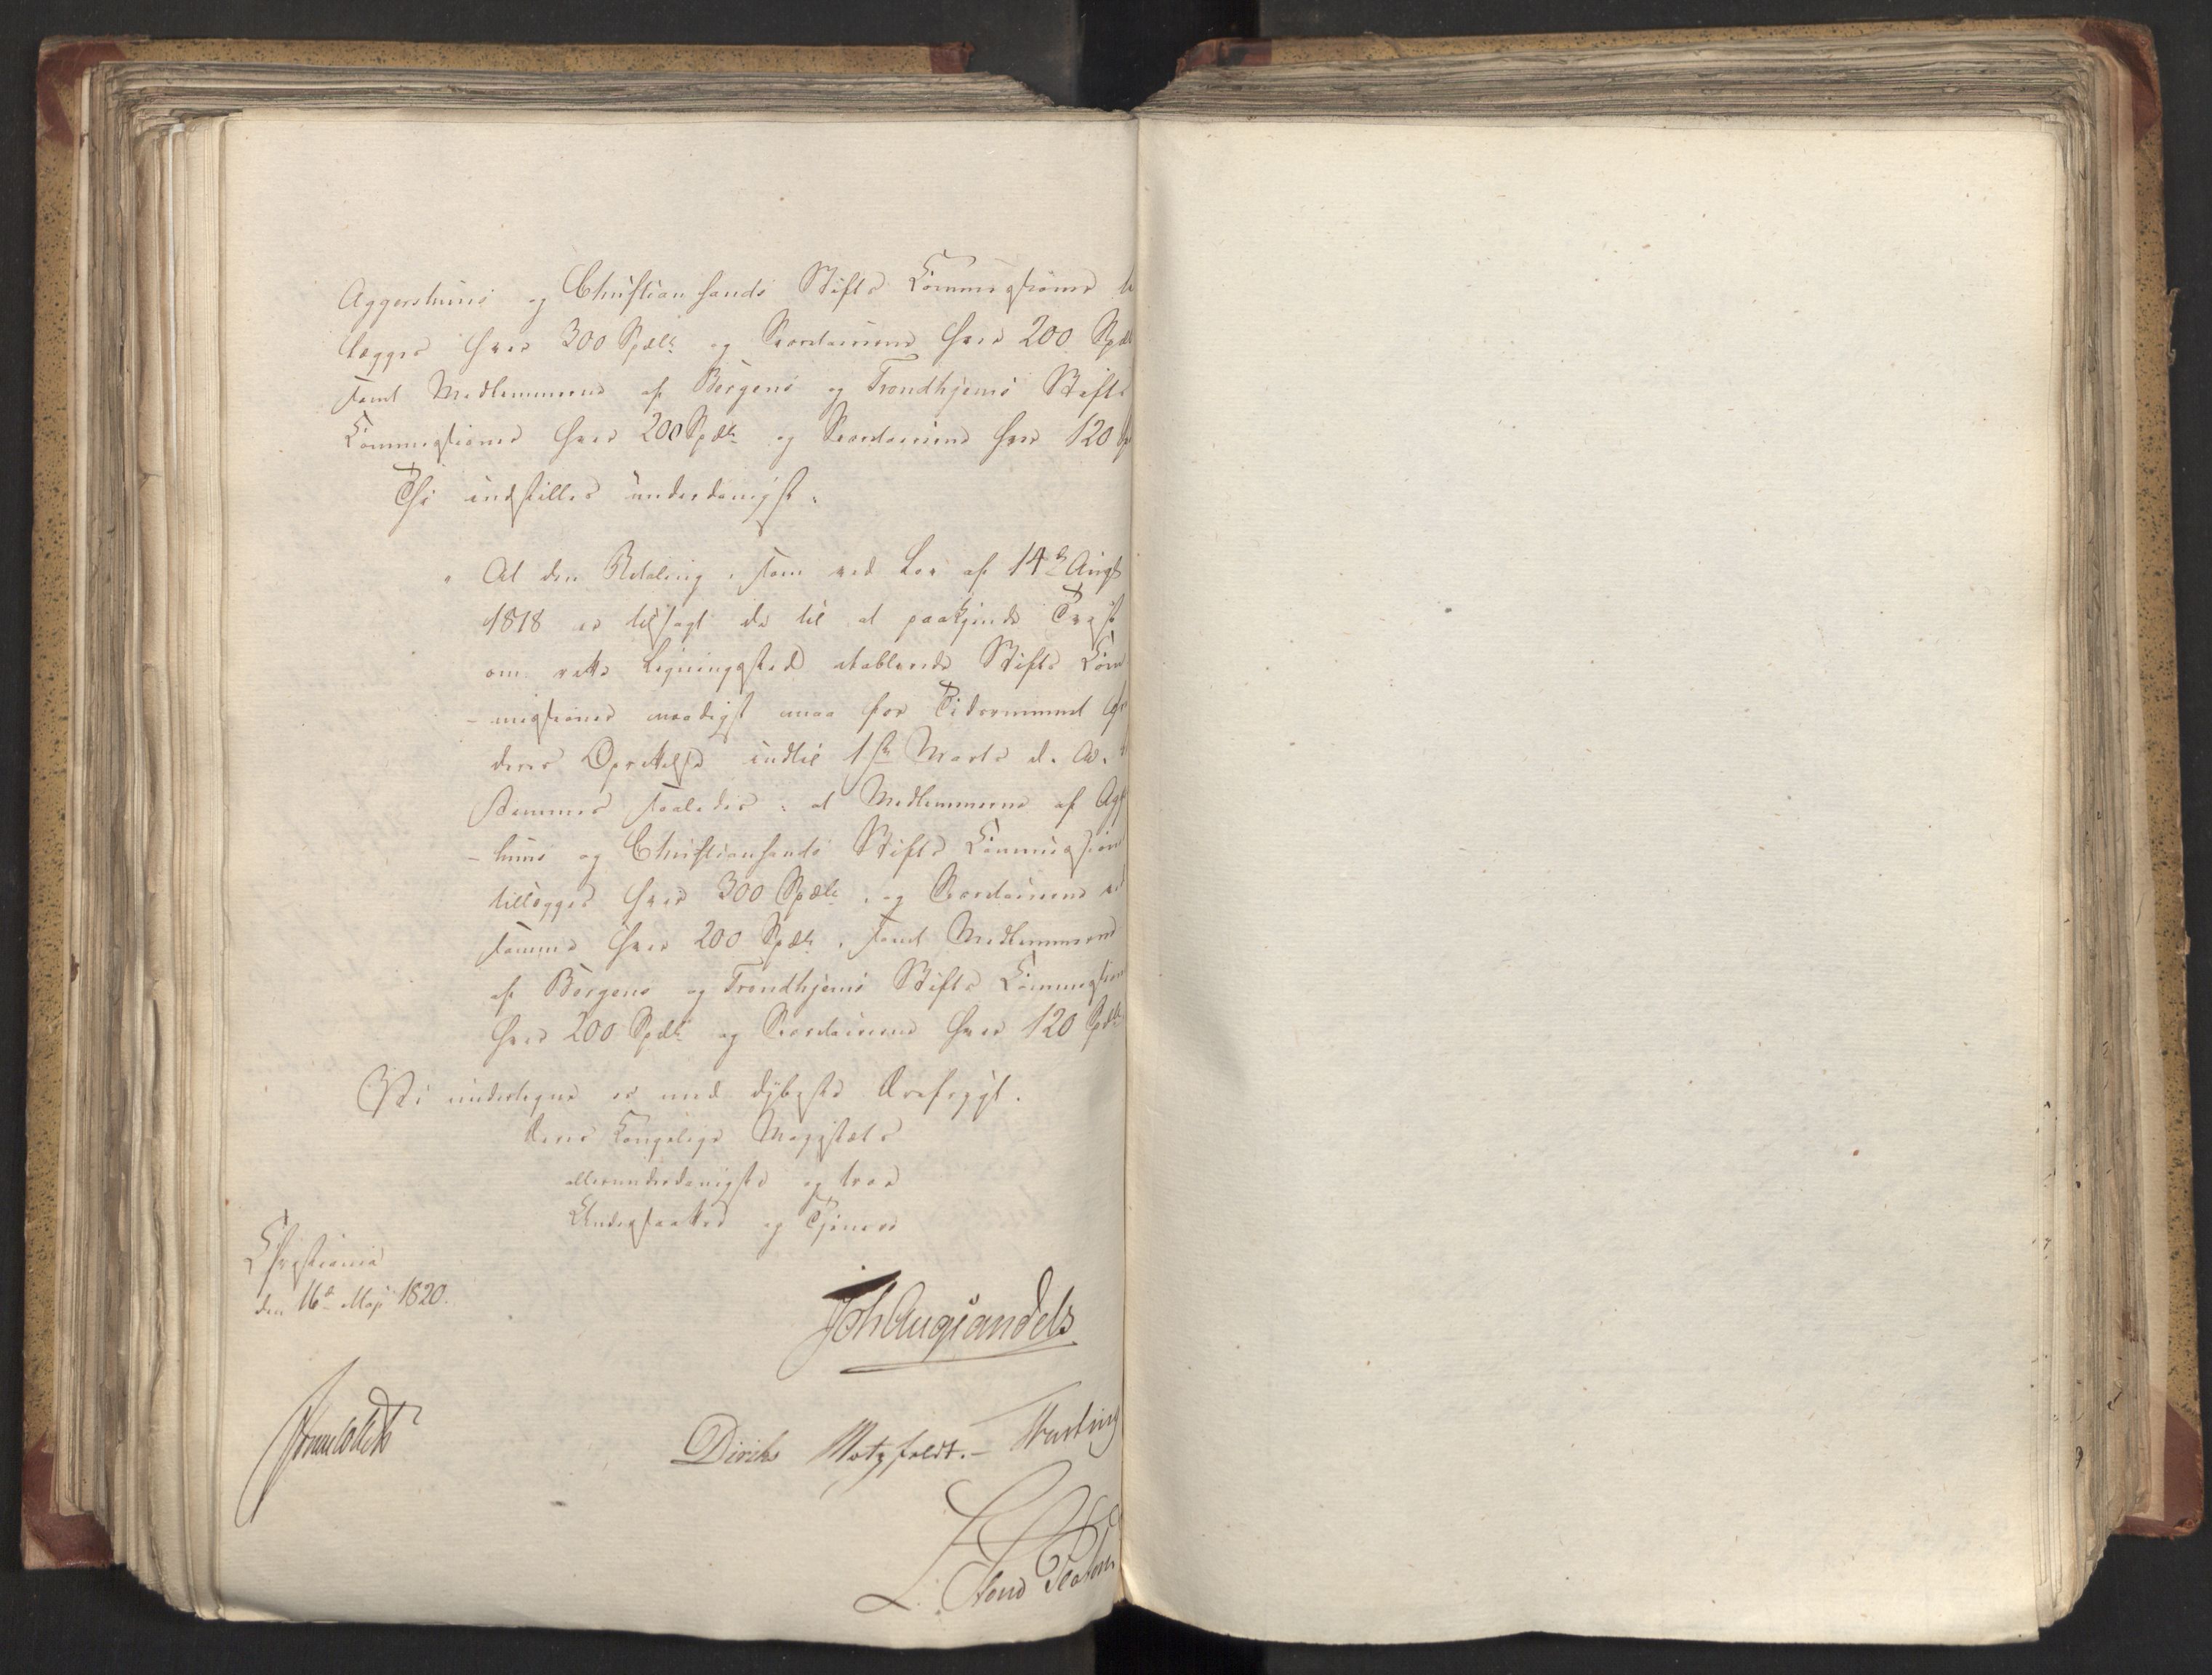 Aggershuus og Christiansands Stifts Commissioner
lægges hver 300 Spdlr og Revisorerne hver 200 Spdl
samt Medlemmerne af Bergens og Trondhjems Stifts
Commissioner hver 200 Spdlr og Revisorerne hver 120
Thi indstilles underdanigst:
" At den Betaling, som ved Lov af 14de Augt
1818 er tilsagt de til at paakjende
om rette Ligningssted etablerede Stifts Com
-missioner naadigst maa for Tidsrummet
deres Oprettelse indtil 1ste Marts d. A.
stemmes saaledes: at Medlemmerne af Agg
-huus og Christiansands Stifts Commission
tillægges hver 300 Spdlr, og
samme hver 200 Spdlr, samt Medlemmerne
af Bergens og Trondhjems Stifts Commission
hver 200 Spdlr og hver 120 Spdlr
Vi undertegne os med dybeste Ærefrygt.
Deres Kongelige Majestæts
allerunderdanigste og troe
Undersaatter og Tjenere
Christiania
den 16de Maji 1820.
Joh Aug Sandels
Sommerhielm
Diriks Motzfeldt. -
L. Stoud Platou